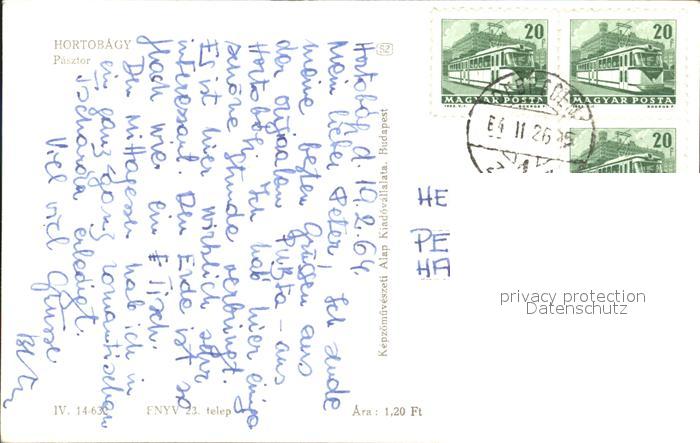 HORTOBÁGY
Pásztor
SZ
Hortobágy d. 10.2.64.
Mein lieber Peter! Ich sende
meine besten Grüssen aus
der originalen Pußta - aus
Hortobágy. Ich hab hier einige
schöne Stunde verbringt.
Es ist hier wirklich sehr
interessant. Den Erde ist so
flach wie ein Tisch.
Den Mittagessen hab ich in
ein ganz-ganz romantischen
Tscharda erledigt.
Viel viel Grüsse
Képzőművészeti Alap Kiadóvállalata, Budapest
IV. 14-63
ENYV 23. telep
Ára : 1,20 Ft
20
MAGYAR POSTA
20
MAGYAR POSTA
20
64 II 26
HE
PE
HA
privacy protection
Datenschutz